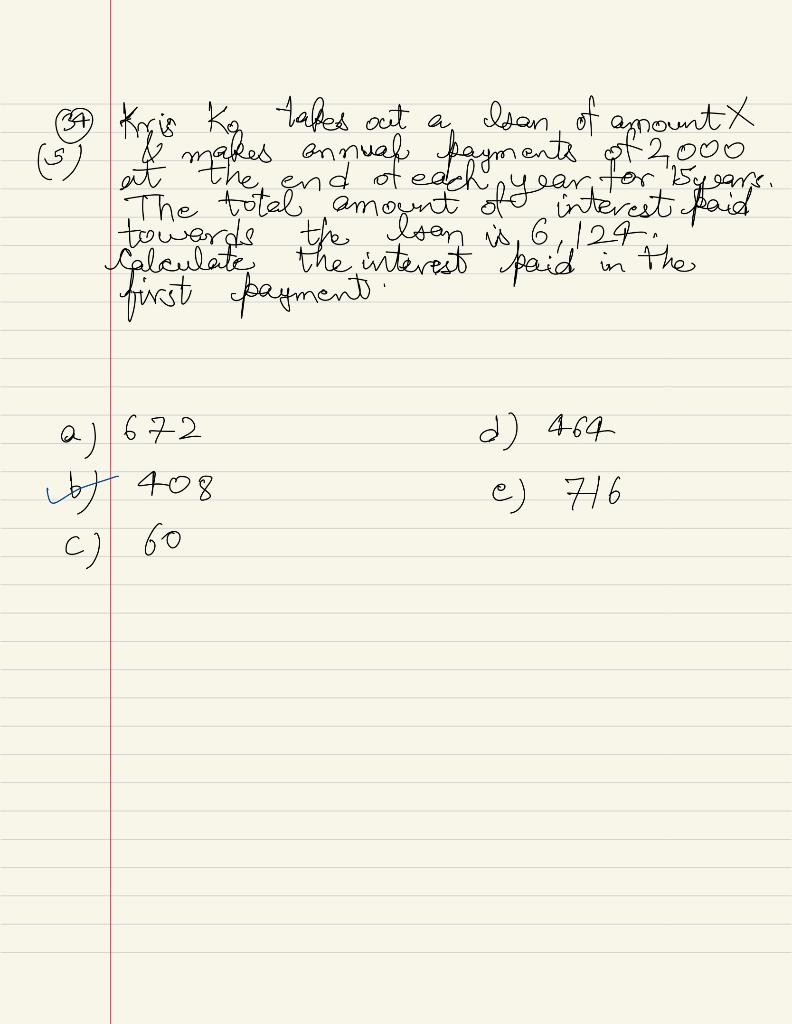 34 Kris Ko takes out a loan of amount X
(5) & makes annual payments of 2,000
at the end of each year for 15 years.
The total amount of interest paid
towards the loan is 6,124.
Calculate the interest paid in the
first payment.
a) 672
b) 408
c) 60
d) 464
e) 716